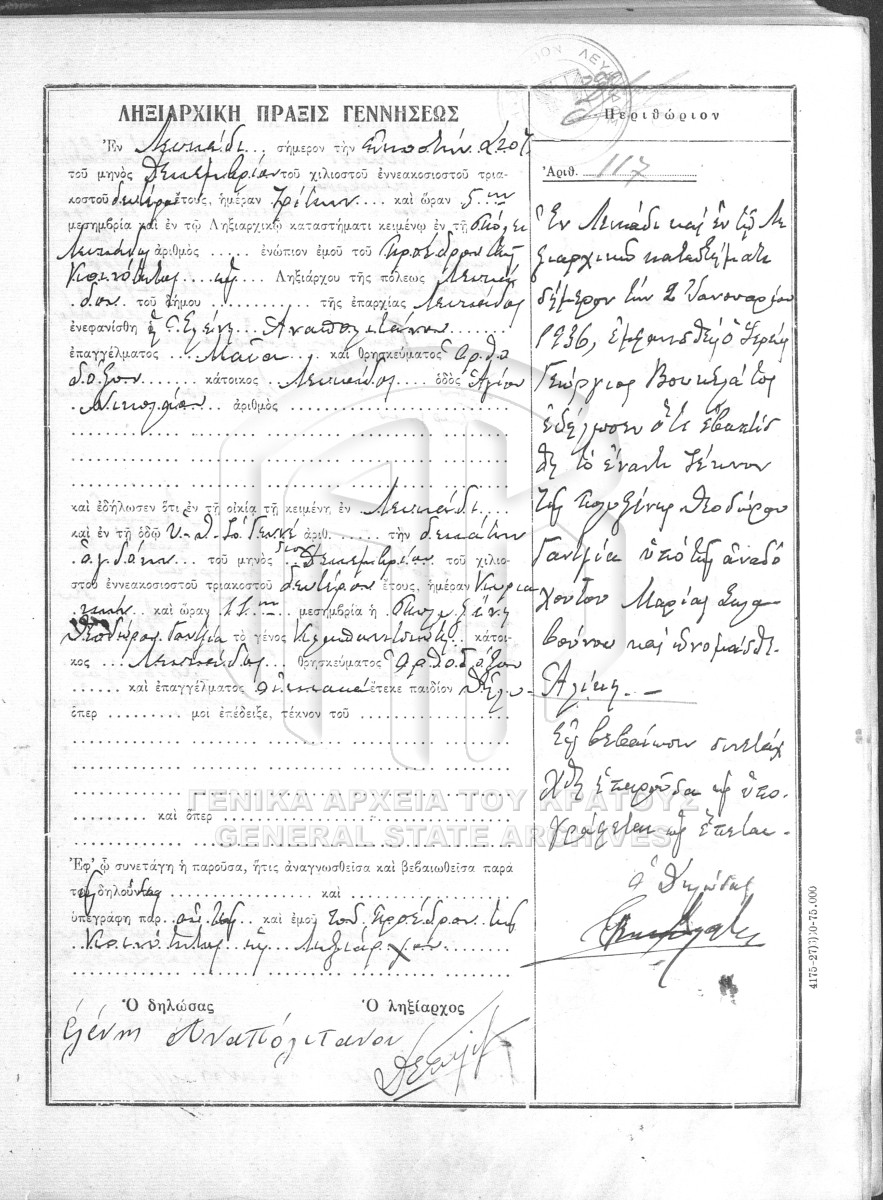 ΛΗΞΙΑΡΧΙΚΗ ΠΡΑΞΙΣ ΓΕΝΝΗΣΕΩΣ
Ἐν Λευκάδι σήμερον τὴν Εἰκοστὴν
τοῦ μηνὸς Δεκεμβρίου τοῦ χιλιοστοῦ ἐννεακοσιοστοῦ τρια-
κοστοῦ δευτέρου ἔτους, ἡμέραν Τρίτην καὶ ὥραν 5 μμ
μεσημβρία καὶ ἐν τῷ Ληξιαρχικῷ καταστήματι κειμένῳ ἐν τῇ Πόλει
Λευκάδος ἀριθμὸς ἐνώπιον ἐμοῦ τοῦ Προέδρου τῆς
Κοινότητος Ληξιάρχου τῆς πόλεως Λευκά
δος τοῦ δήμου τῆς ἐπαρχίας Λευκάδος
ἐνεφανίσθη ἡ Ἑλένη Ἀναπολιτάνου
ἐπαγγέλματος Μαῖα καὶ θρησκεύματος Ὀρθο
δόξου κάτοικος Λευκάδος ὁδὸς Ἁγίου
Νικολάου ἀριθμὸς
καὶ ἐδήλωσεν ὅτι ἐν τῇ οἰκίᾳ τῇ κειμένῃ ἐν Λευκάδι
καὶ ἐν τῇ ὁδῷ ἀριθ. τὴν δεκάτην
ὀγδόην τοῦ μηνὸς Δεκεμβρίου τοῦ χιλιο-
στοῦ ἐννεακοσιοστοῦ τριακοστοῦ δευτέρου ἔτους, ἡμέραν Κυρια
κὴν καὶ ὥραν 11 μεσημβρία ἡ Πολυξένη
Θεοδώρου Γαντζία τὸ γένος κάτοι-
κος Λευκάδος θρησκεύματος Ὀρθοδόξου
καὶ ἐπαγγέλματος οἰκιακὰ ἔτεκε παιδίον Θῆλυ
ὅπερ μοι ἐπέδειξε, τέκνον τοῦ
καὶ ὅπερ
Ἐφ' ᾧ συνετάγη ἡ παροῦσα, ἥτις ἀναγνωσθεῖσα καὶ βεβαιωθεῖσα παρὰ
τῆς δηλούσης καὶ
ὑπεγράφη παρ αὐτῆς καὶ ἐμοῦ τοῦ Προέδρου τῆς
Κοινότητος Ληξιάρχου
Ὁ δηλώσας Ὁ ληξίαρχος
Ελένη Αναπολιτανου
Περιθώριον
Ἀριθ. 117
Ἐν Λευκάδι καὶ ἐν τῷ Λη
ξιαρχικῷ καταστήματι
σήμερον τὴν 2 Ἰανουαρίου
1936, ἐμφανισθεὶς ὁ Ἱερεὺς
Γεώργιος Βουκελάτος
ἐδήλωσεν ὅτι ἐβαπτίσ
θη τὸ ἔναντι τέκνον
τῆς Πολυξένης Θεοδώρου
Γαντζία ὑπὸ τῆς ἀναδό
χου του Μαρίας Σκλα
βούνου καὶ ὠνομάσθη
Ἀλίκη.—
Εἰς βεβαίωσιν συνετά
χθη ἡ παροῦσα ὑπο
γράφεται ὡς ἕπεται.
ὁ Δηλώσας
4175-27)3)30-75.000
ΓΕΝΙΚΑ ΑΡΧΕΙΑ ΤΟΥ ΚΡΑΤΟΥΣ
GENERAL STATE ARCHIVES